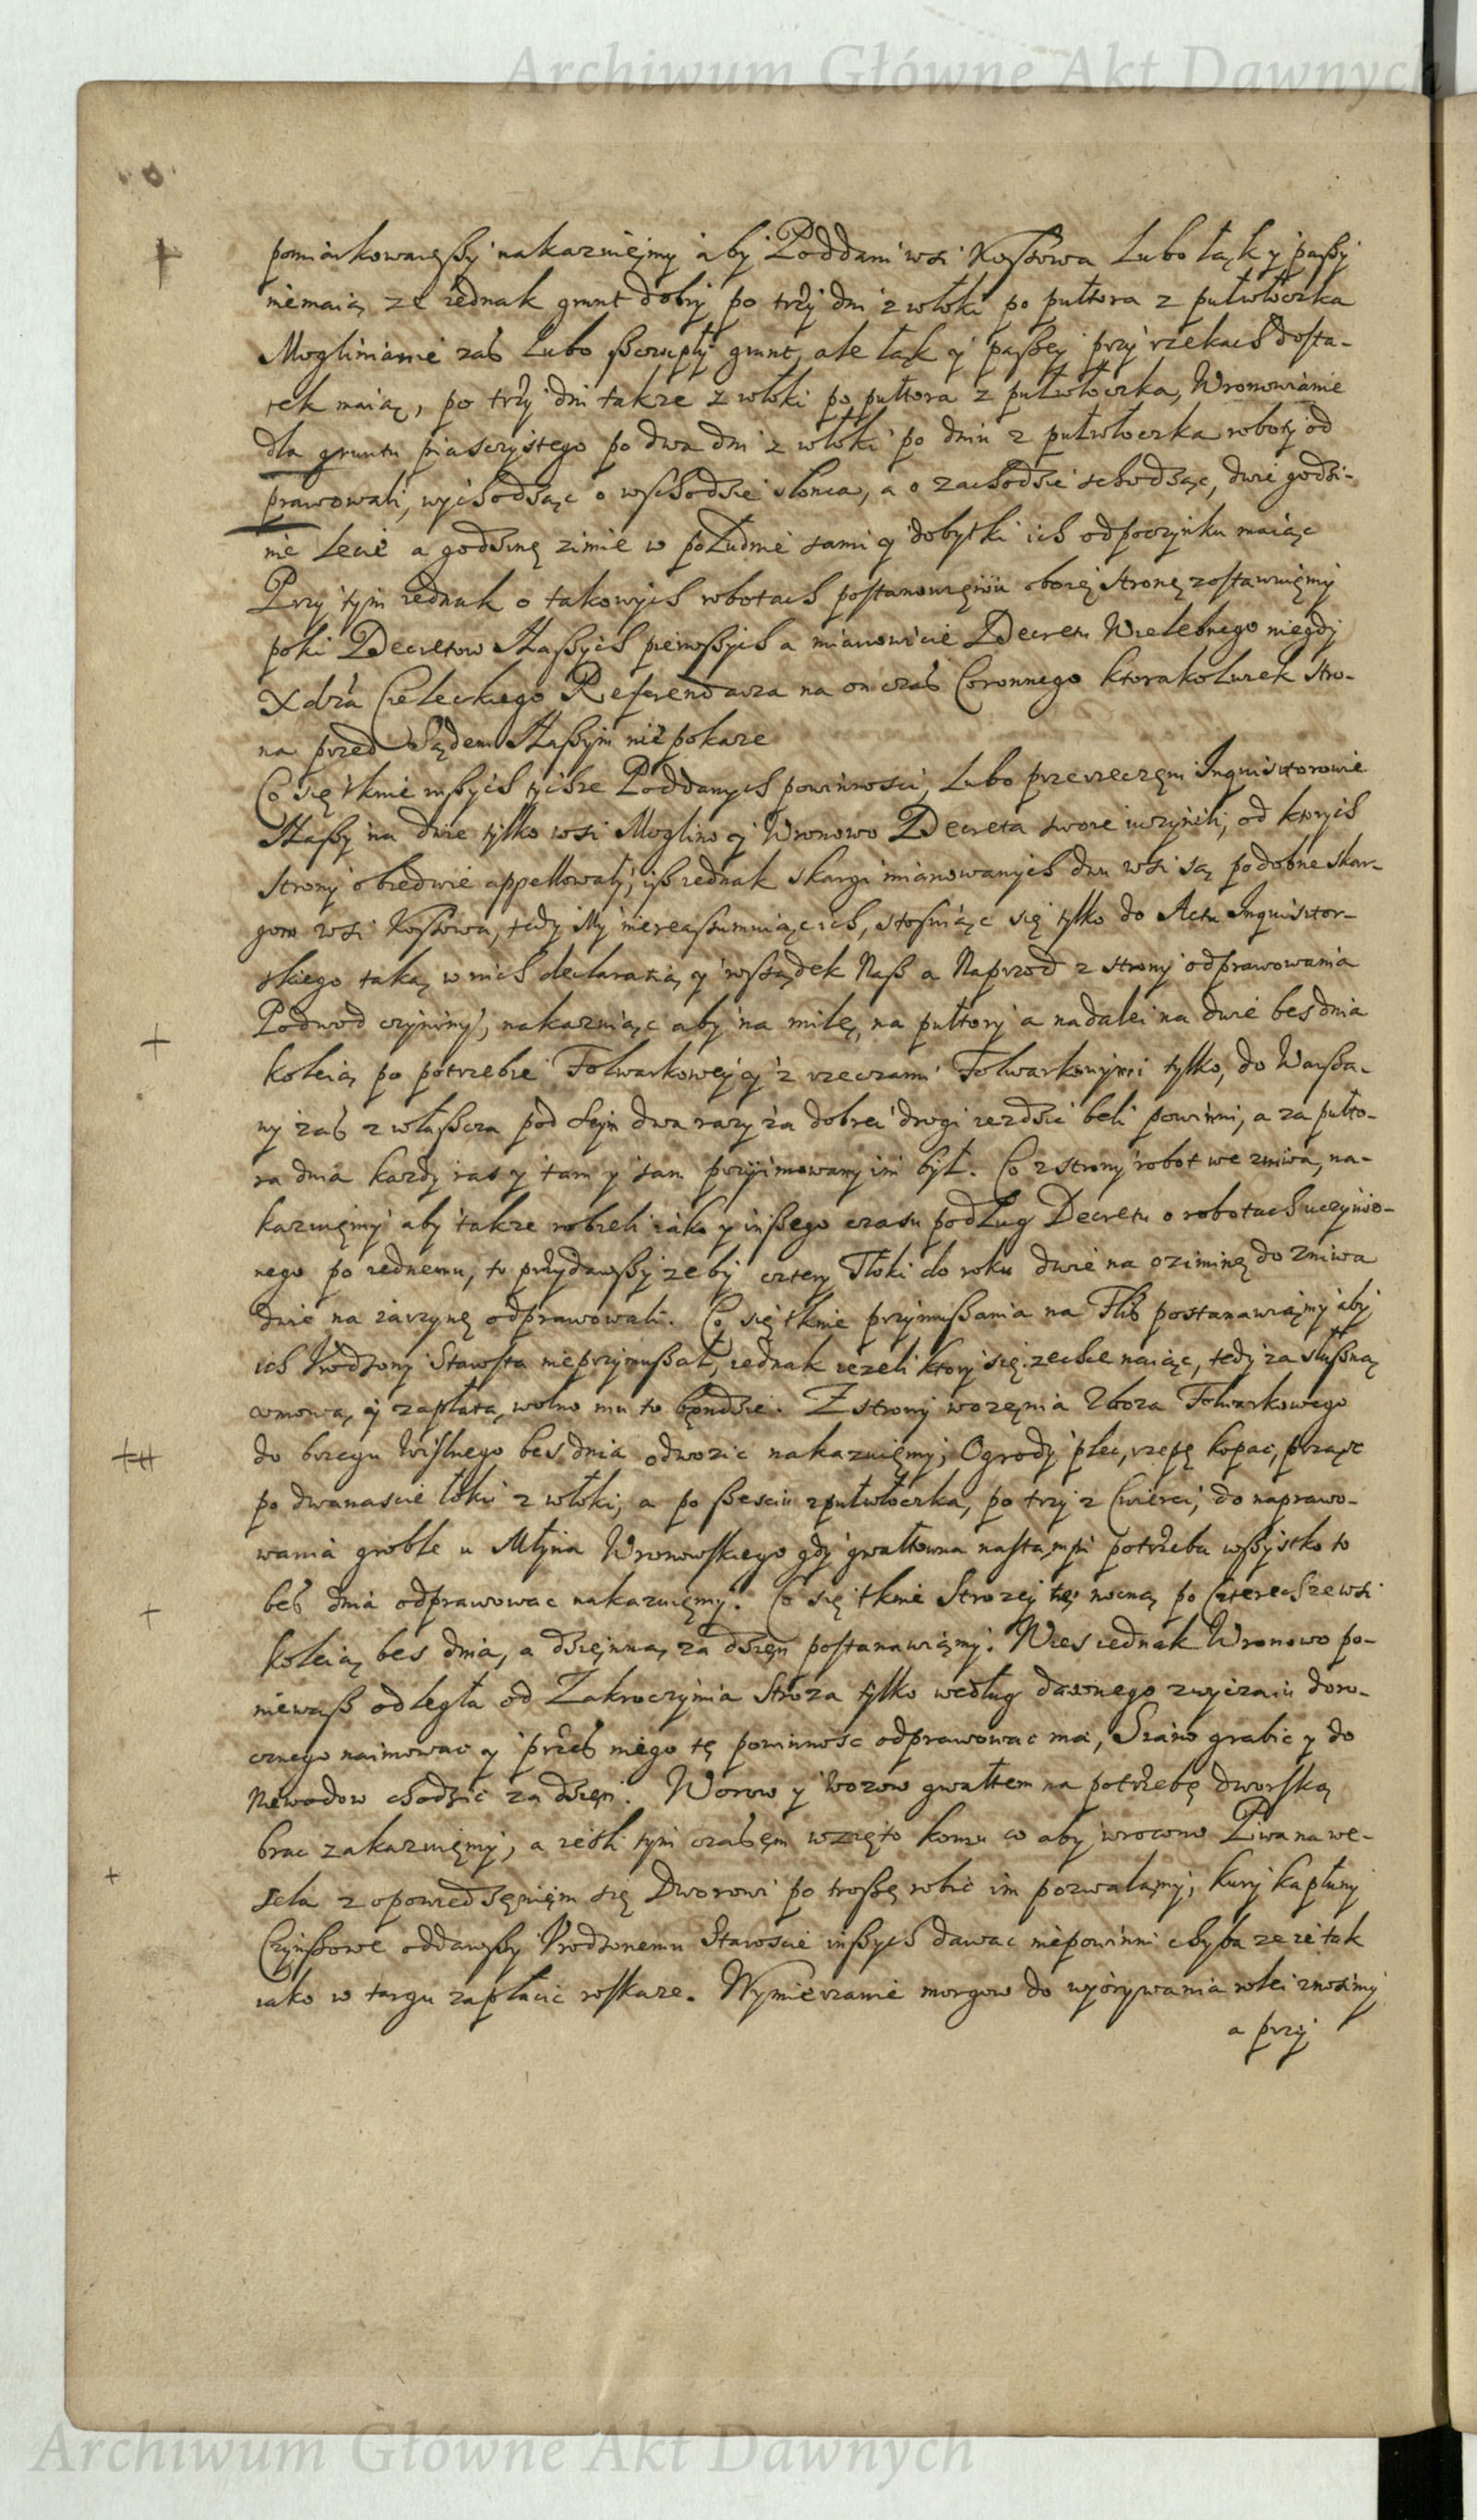 Archiwum Główne Akt Dawnych
pomiarkowawszy nakazuięmy aby Poddani wsi Kossowa Lubo łąk y paszy
niemaią ze iednak grunt dobry po trzy dni z włoki po pułtora z pułwłoczka
Moglinianie zaś Lubo szczupły grunt, ale łąk y paszey przy rzekach dosta-
tek maią, po trzy dni takze z włoki po pułtora z pułwłoczka, Wronowianie
dla gruntu piasczystego po dwa dni z włoki po dniu z pułwłoczka roboty od
prawowali, wychodsąc o wschodzie słonca, a o zachodzie schodsąc, dwie godzi-
nie lecie a godzinę zimie w południe sami y dobytki ich odpoczynku maiąc
Przy tym iednak o takowych robotach postanowięniu oboię stronę zostawuięmy
poki Decretow Naszych pierwszych a mianowicie Decretu Wielebnego niegdy
Xdza Cieleckiego Referendarza na on czas Coronnego ktorakolwiek stro-
na przed Sądem Naszym nie pokaze
Co się tknie inszych tychze Poddanych powinnosci, Lubo przerzeczęni Inquisitorowie
Naszy na dwie tylko wsi Moglino y Wronowo Decreta swoie uczynili, od ktorych
strony obiedwie appellowały, isz iednak skargi mianowanych dwu wsi są podobne skar-
gom wsi Kossowa, tedy My niereassumuiąc ich, stosuiąc się tylko do Actu Inquisitor-
skiego taką w nich declaratią y rossądek Nasz a Naprzod z strony odprawowania
Podwod czynimy, nakazuiąc aby na milę, na pułtory a nadalei na dwie bes dnia
koleią po potrzebie Folwarkowey y z rzeczami Folwarkowymi tylko, do Warsza-
wy zas zwłaszcza pod Seym dwa razy za dobrei drogi iezdzic beli powinni, a za pułto-
ra dnia kazdy raz y tam y sam przyimowany im był. Co z strony robot we zniwa, na-
kazuięmy aby takze robieli iako y inszego czasu podług Decretu o robotach uczynio-
nego po iednemu, to przydawszy zeby cztery Tłoki do roku dwie na oziminę do zniwa
dwie na iarzynę odprawowali. Co się tknie przymuszania na Flis postanawiamy aby
ich Urodzony Starosta nieprzymuszał, iednak iezeli ktory się zechce naiąc, tedy za słuszną
umową y zapłatą, wolno mu to bęndzie. Z strony wozęnia Zboza Folwarkowego
do brzegu Wislnego bes dnia odwozic nakazuięmy; Ogrody plec, rzepę kopac, prząsc
po dwanascie łokci z włoki, a po szesciu z pułwłoczka, po trzy z Cwierci, do naprawo-
wania groble u Młyna Wronowskiego gdy gwałtowna nastąmpi potrzeba wszystko to
bes dnia odprawowac nakazuięmy. Co się tknie Strozey tey nocną po czterech ze wsi
koleią bes dnia, a dzięnną za dzięn postanawiamy. Wies iednak Wronowo po-
niewasz odległa od Zakroczymia Stroza tylko według dawnego zwyczaiu doro-
cznego naimowac y przes niego tę powinnosc odprawowac ma, Siano grabic y do
Niewodow chodzic za dzięn. Worow y Wozow gwałtem na potrzebę dworską
brac zakazuięmy, a iesli tym czasęm wzięto komu co aby wrocono Piwa na we-
sela z opowiedzięnięm się Dworowi po troszę robic im pozwalamy, kury kapłuny
Czynszowe oddawszy Urodzonemu Staroscie inszych dawac niepowinni chyba ze ie tak
iako w targu zapłacic roskaze. Wymierzanie morgow do wyorywania rolei znosimy
a przy
Archiwum Główne Akt Dawnych